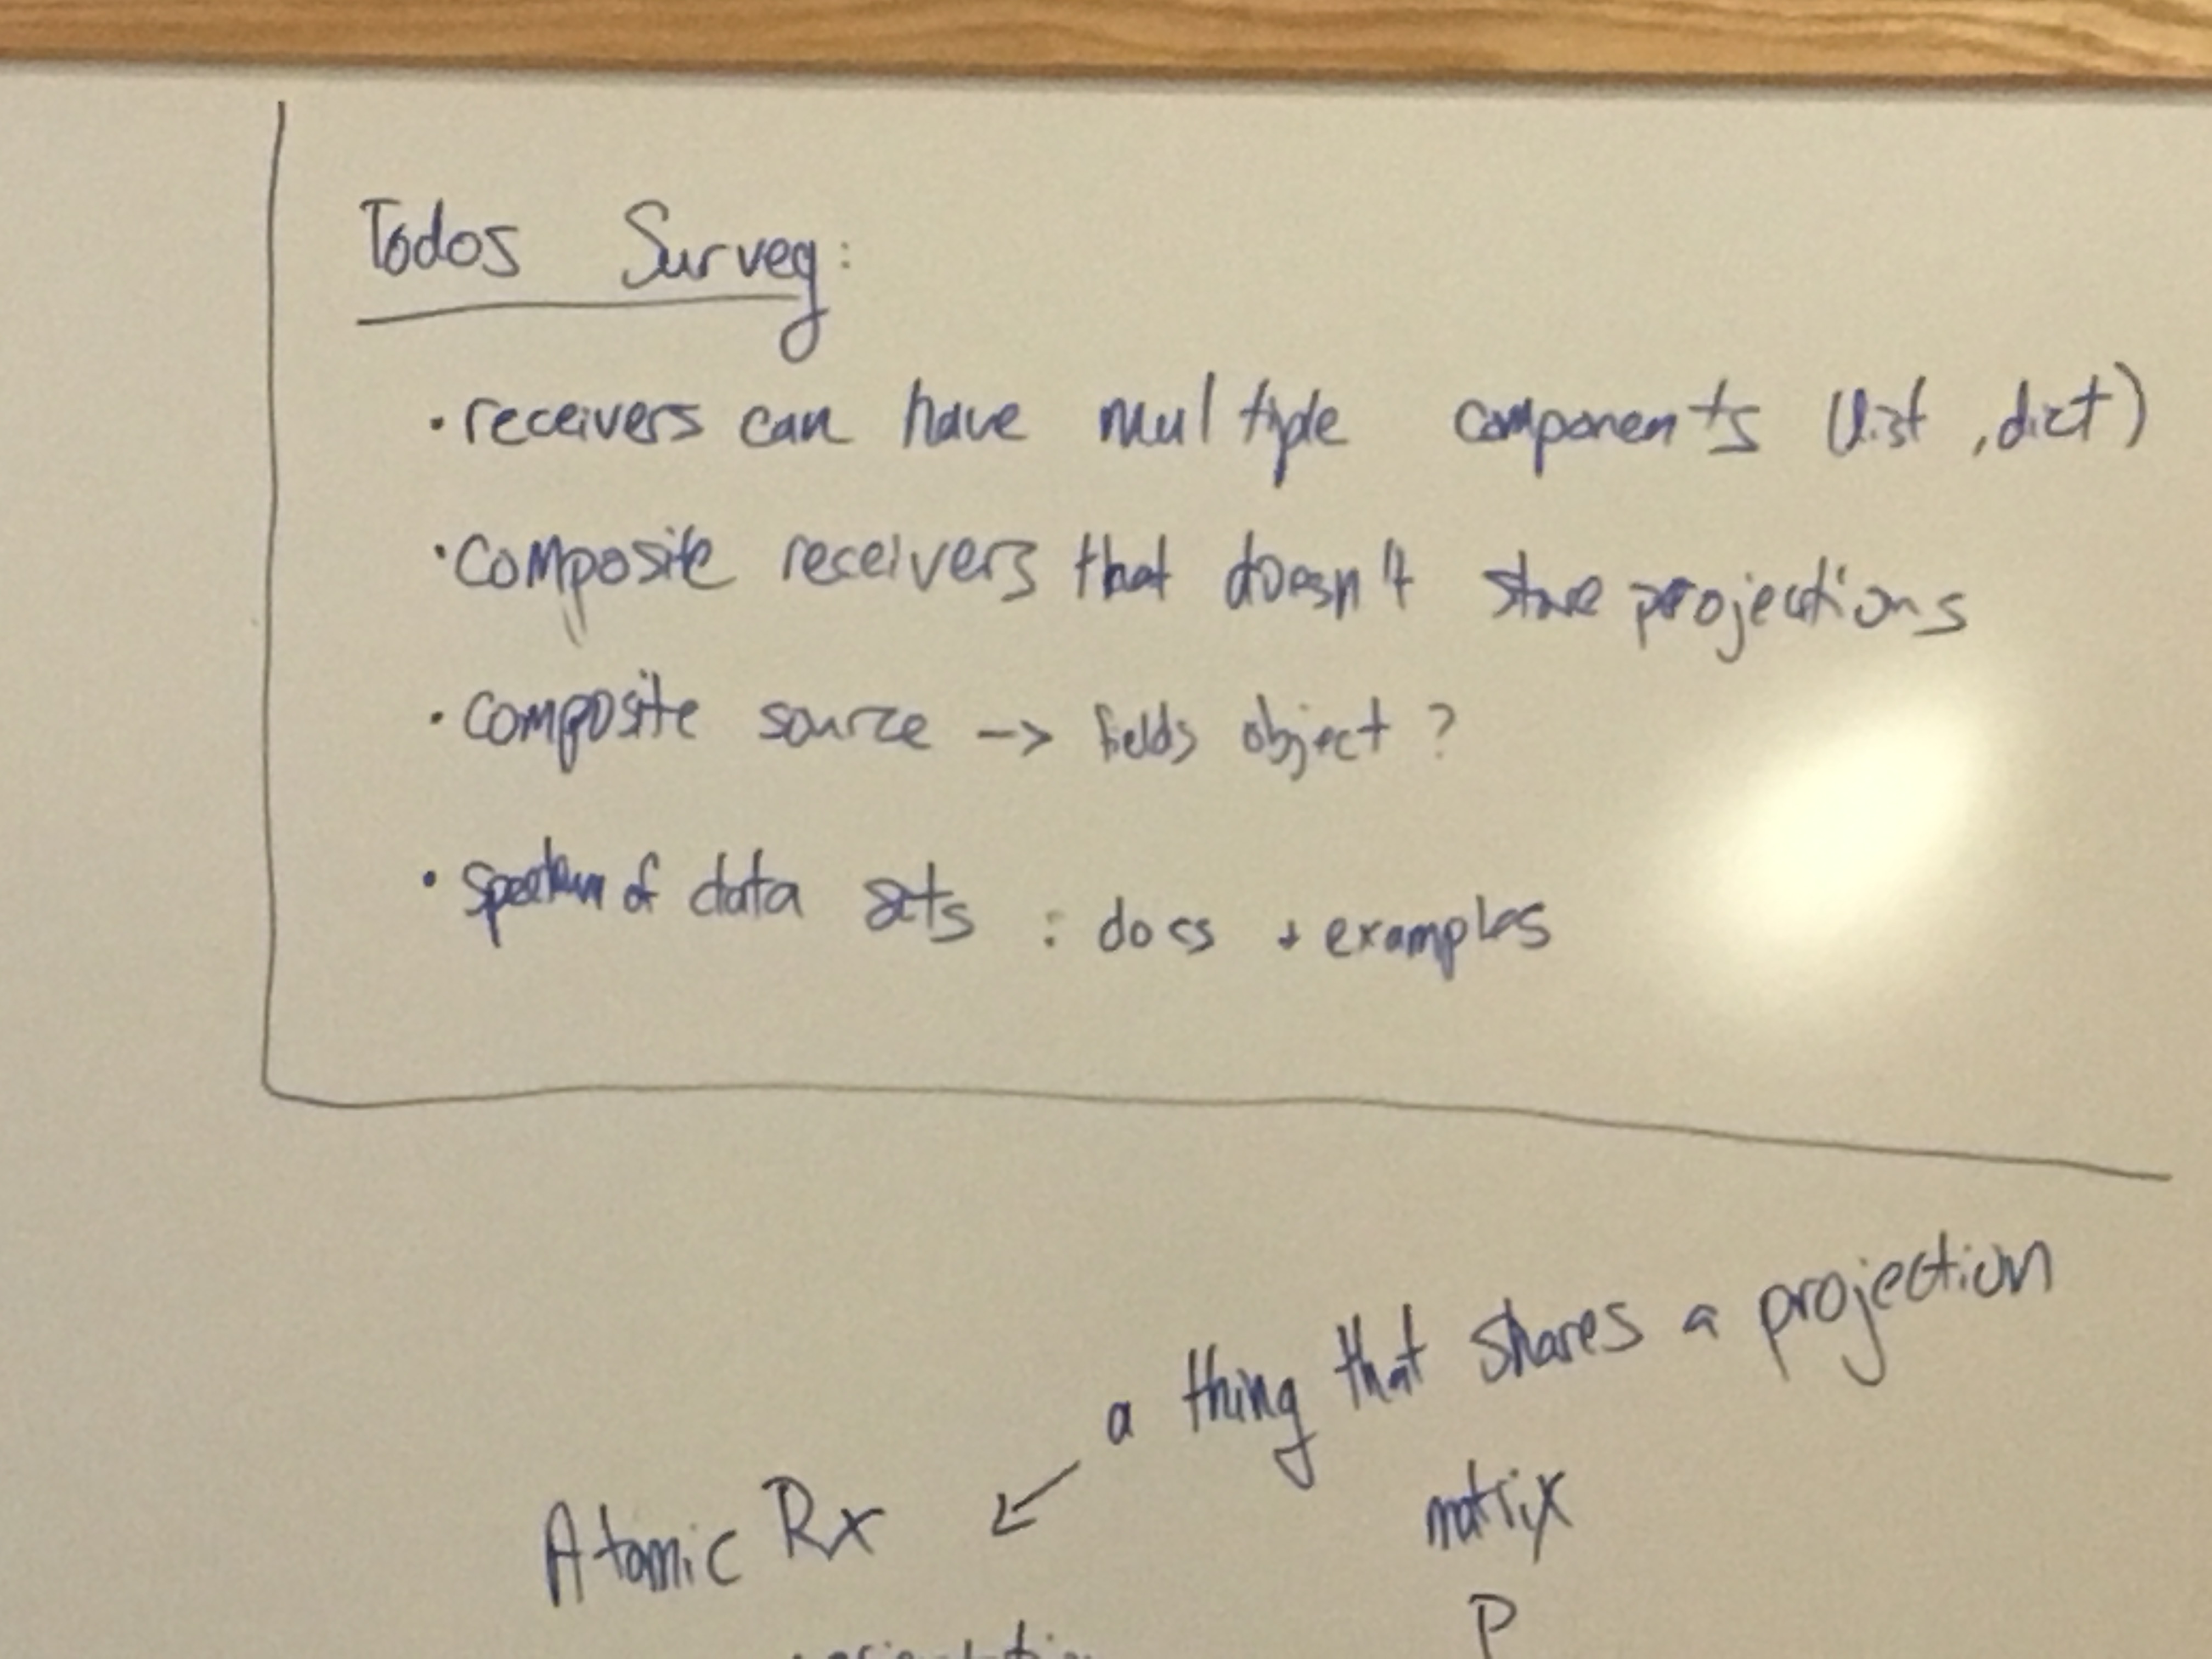 Todos Survey:
• receivers can have multiple components (list, dict)
• composite receivers that doesn't store projections
• composite source -> fields object ?
• spectrum of data sets : docs + examples
a thing that shares a projection
matrix
Atomic Rx
P